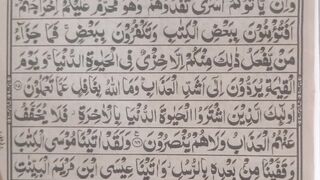 وَاِنْ يَّاْتُوْكُمْ اُسٰرٰى تُفٰدُوْهُمْ وَهُوَ مُحَرَّمٌ عَلَيْكُمْ اِخْرَاجُهُمْ
اَفَتُؤْمِنُوْنَ بِبَعْضِ الْكِتٰبِ وَتَكْفُرُوْنَ بِبَعْضٍ ۚ فَمَا جَزَآءُ
مَنْ يَّفْعَلُ ذٰلِكَ مِنْكُمْ اِلَّا خِزْيٌ فِي الْحَيٰوةِ الدُّنْيَا ۚ وَيَوْمَ
الْقِيٰمَةِ يُرَدُّوْنَ اِلٰٓى اَشَدِّ الْعَذَابِ ؕ وَمَا اللّٰهُ بِغَافِلٍ عَمَّا تَعْمَلُوْنَ ۝۸۵
اُولٰٓئِكَ الَّذِيْنَ اشْتَرَوُا الْحَيٰوةَ الدُّنْيَا بِالْاٰخِرَةِ ۫ فَلَا يُخَفَّفُ
عَنْهُمُ الْعَذَابُ وَلَا هُمْ يُنْصَرُوْنَ ۝۸۶ وَلَقَدْ اٰتَيْنَا مُوْسَى الْكِتٰبَ
وَقَفَّيْنَا مِنْۢ بَعْدِهٖ بِالرُّسُلِ ۫ وَاٰتَيْنَا عِيْسَى ابْنَ مَرْيَمَ الْبَيِّنٰتِ